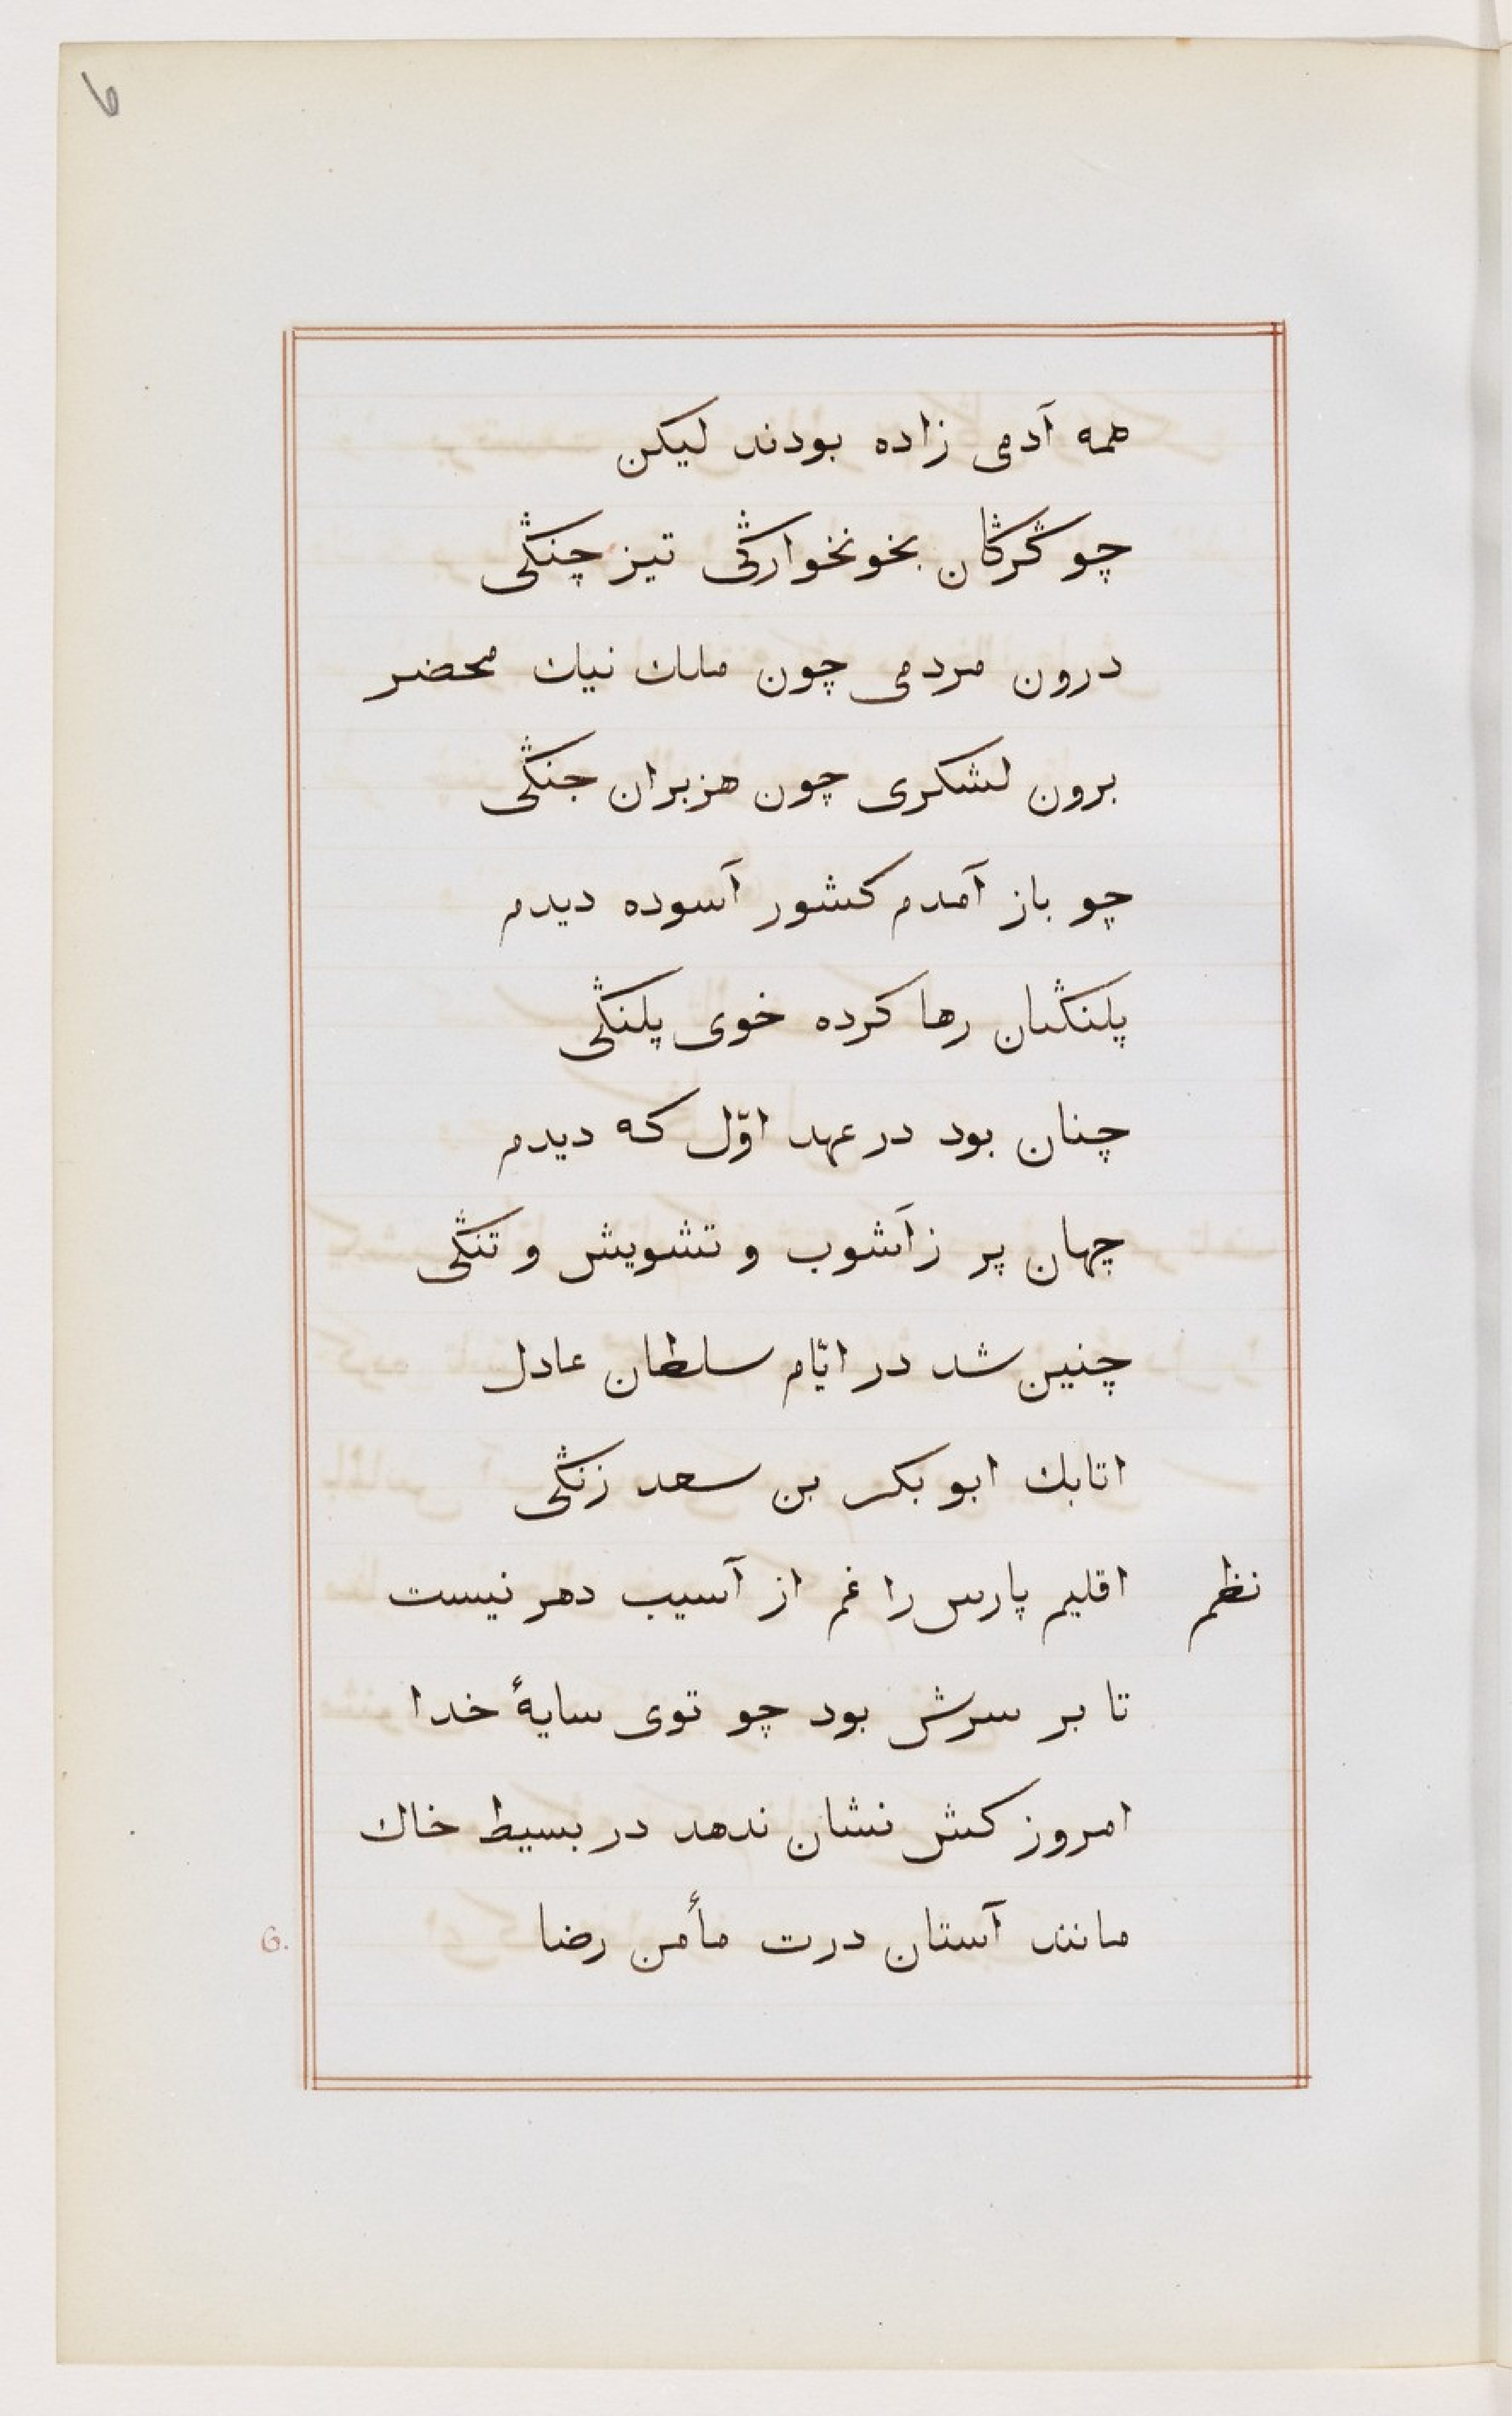 ۶
همه آدمی زاده بودند لیکن
چو گرگان بخونخوارگی تیز چنگی
درون مردمی چون ملك نیك محضر
برون لشکری چون هزبران جنگی
چو باز آمدم کشور آسوده دیدم
پلنگان رها کرده خوی پلنگی
چنان بود در عهد اوّل که دیدم
جهان پر زآشوب و تشویش و تنگی
چنین شد در ایّام سلطان عادل
اتابك ابو بکر بن سعد زنگی
نظم اقلیم پارس را غم از آسیب دهر نیست
تا بر سرش بود چو توی سایهٔ خدا
امروز کش نشان ندهد در بسیط خاك
مانند آستان درت مأمن رضا
6.